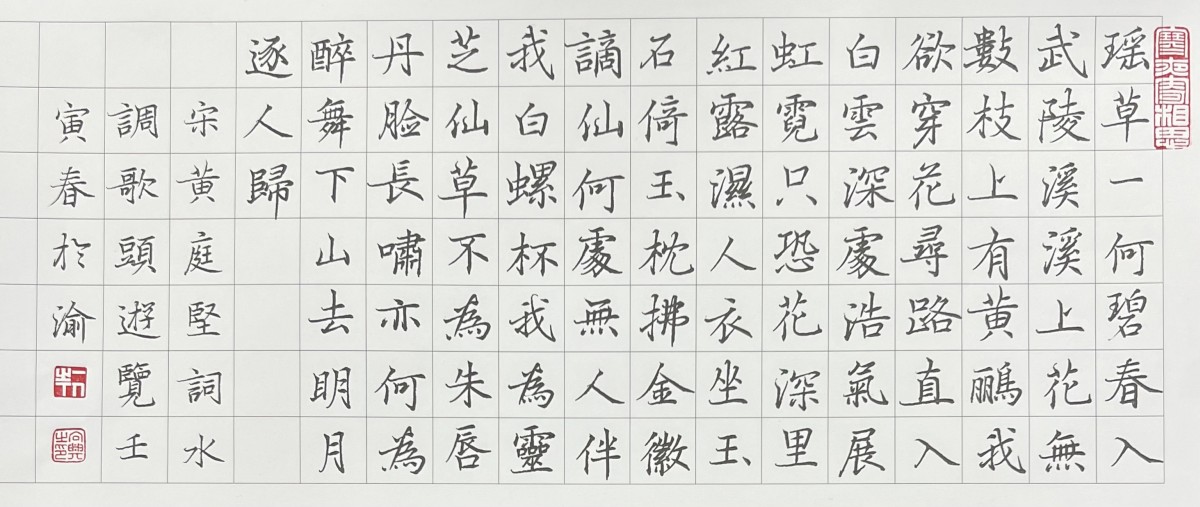 瑶草一何碧春入
武陵溪溪上花無
數枝上有黄鸝我
欲穿花尋路直入
白雲深處浩氣展
虹霓只恐花深里
紅露濕人衣坐玉
石倚玉枕拂金徽
謫仙何處無人伴
我白螺杯我為靈
芝仙草不為朱唇
丹脸長嘯亦何為
醉舞下山去明月
逐人歸
宋黄庭堅詞水
調歌頭遊覽壬
寅春於渝